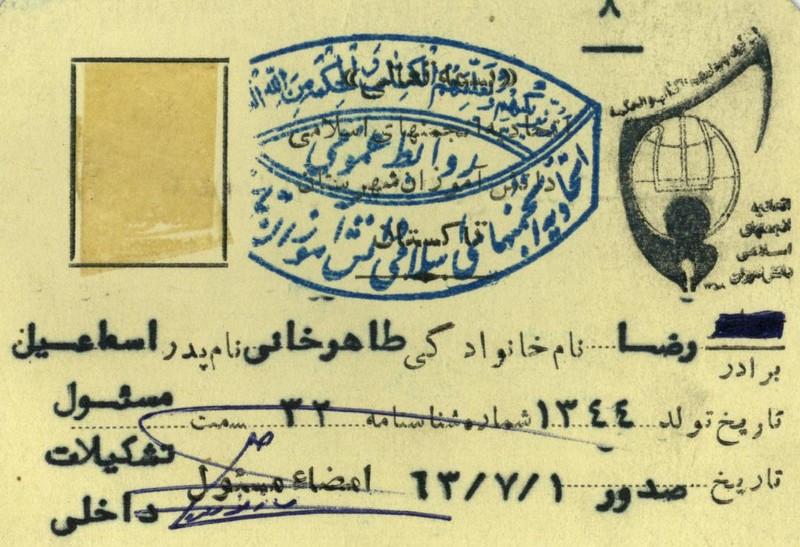 ۸
«وبسمه تعالی»
اتحادیه انجمنهای اسلامی
روابط عمومی
دانش آموزان شهرستان
تاکستان
اتحادیه انجمنهای اسلامی دانش آموزان
اتحادیه
انجمنهای
اسلامی
دانش‌آموزان
برادر رضا نام خانوادگی طاهرخانی نام پدر اسماعیل
تاریخ تولد ۱۳۴۴ شماره شناسنامه ۳۲ سمت مسئول
تشکیلات
داخلی
تاریخ صدور ۶۳/۷/۱ امضاء مسئول